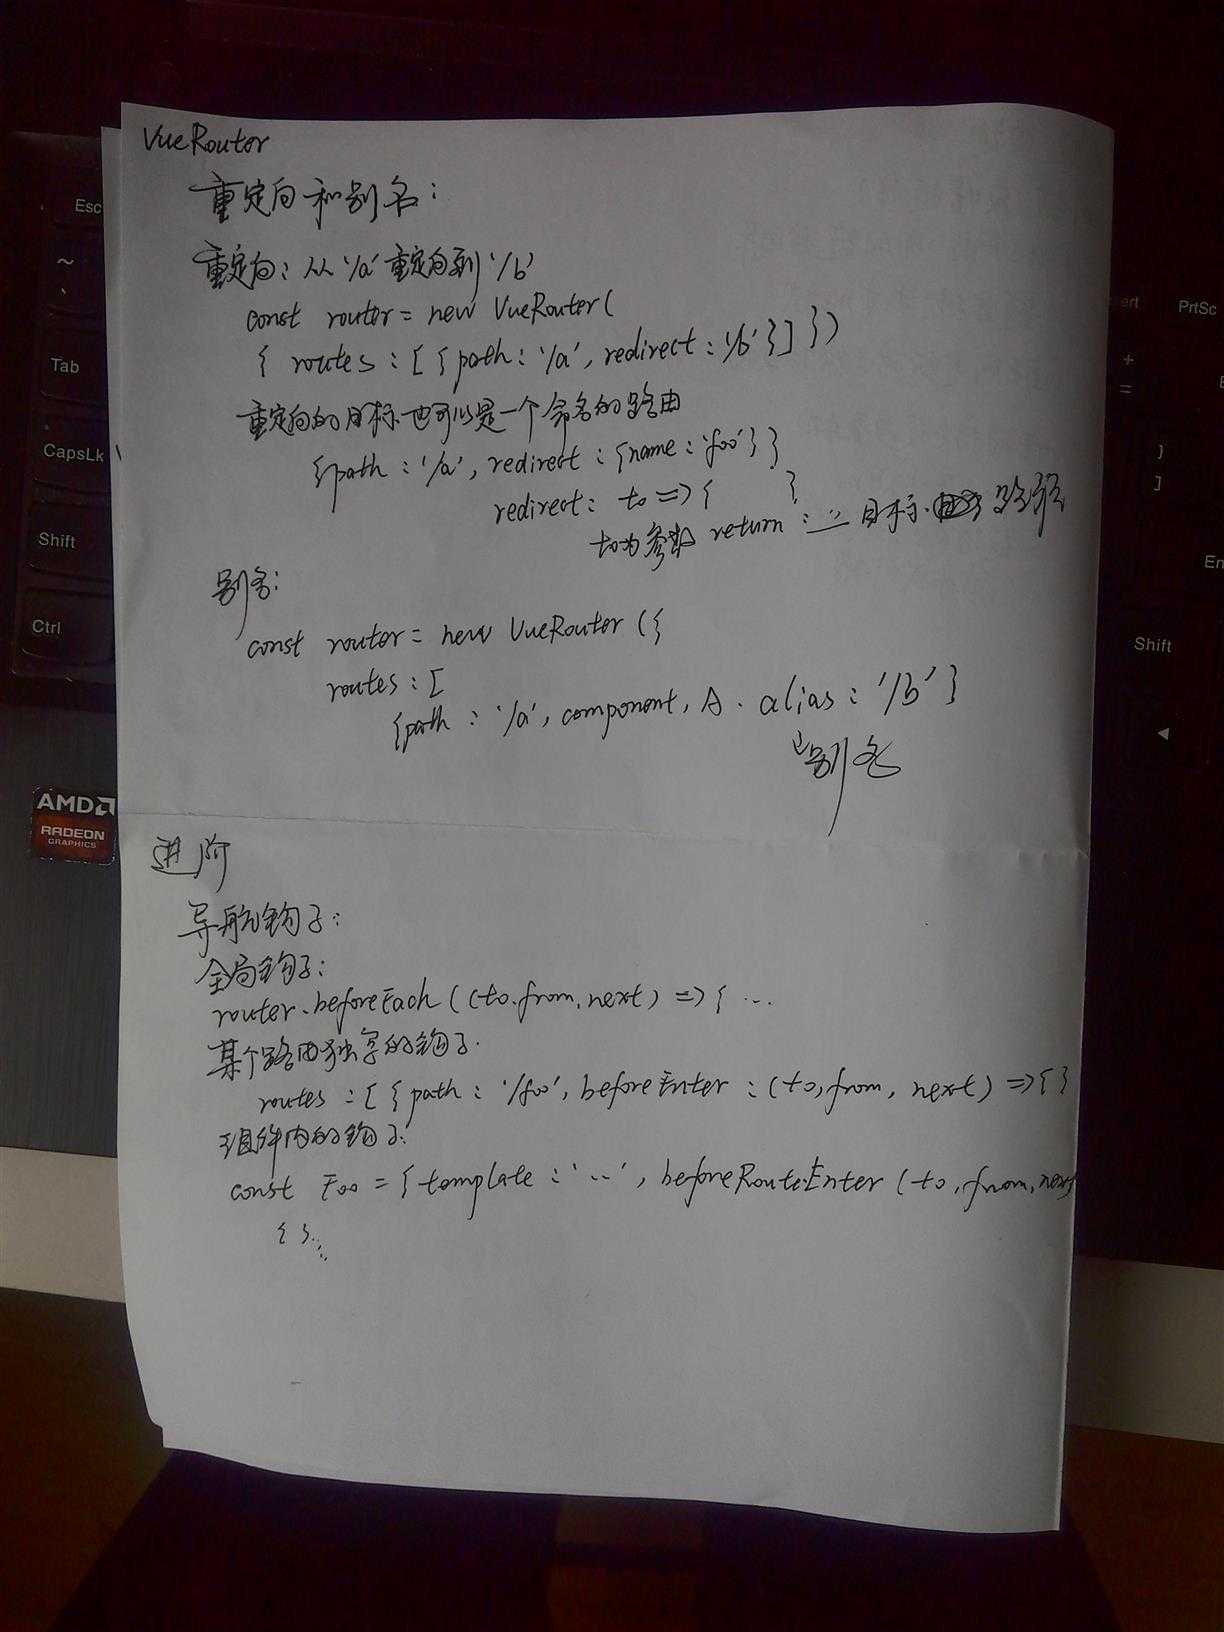 VueRouter
重定向和别名:
重定向: 从'/a'重定向到'/b'
const router = new VueRouter(
{ routes : [ { path : '/a', redirect : '/b' } ] })
重定向的目标也可以是一个命名的路由
{path : '/a', redirect : {name : 'foo'} }
redirect : to => { }
to为参数 return : 目标 路径
别名:
const router = new VueRouter ({
routes : [
{path : '/a', component, A. alias : '/b' }
别名
进阶
导航钩子:
全局钩子:
router.beforeEach ((to.from,next) => { ...
某个路由独享的钩子.
routes : [ { path : '/foo', beforeEnter : (to, from, next) => { }
组件内的钩子:
const Foo = { template : '...', beforeRouteEnter ( to, from, next
{ }...
Esc
~
Tab
CapsLk
Shift
Ctrl
AMD
RADEON
GRAPHICS
PrtSc
+
=
]
Shift